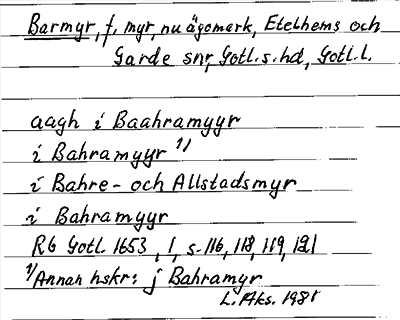 Barmyr, f. myr, nu ägomark, Etelhems och
Garde snr, Gotl. s. hd, Gotl. l.
aagh i Baahramyyr
i Bahramyyr 1)
i Bahre- och Allstadsmyr
i Bahramyyr
RG Gotl. 1653, 1, s. 116, 118, 119, 121
1) Annan hskr: j Bahramyr
L. Aks. 1981